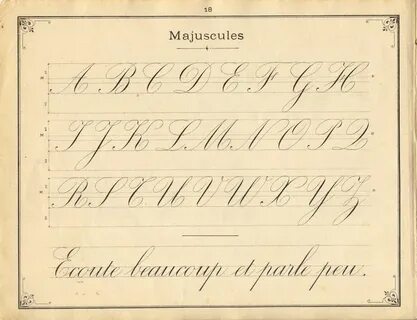 18
Majuscules
A B C D E F G H
I J K L M N O P Q
R S T U V W X Y Z
Ecoute beaucoup et parle peu.